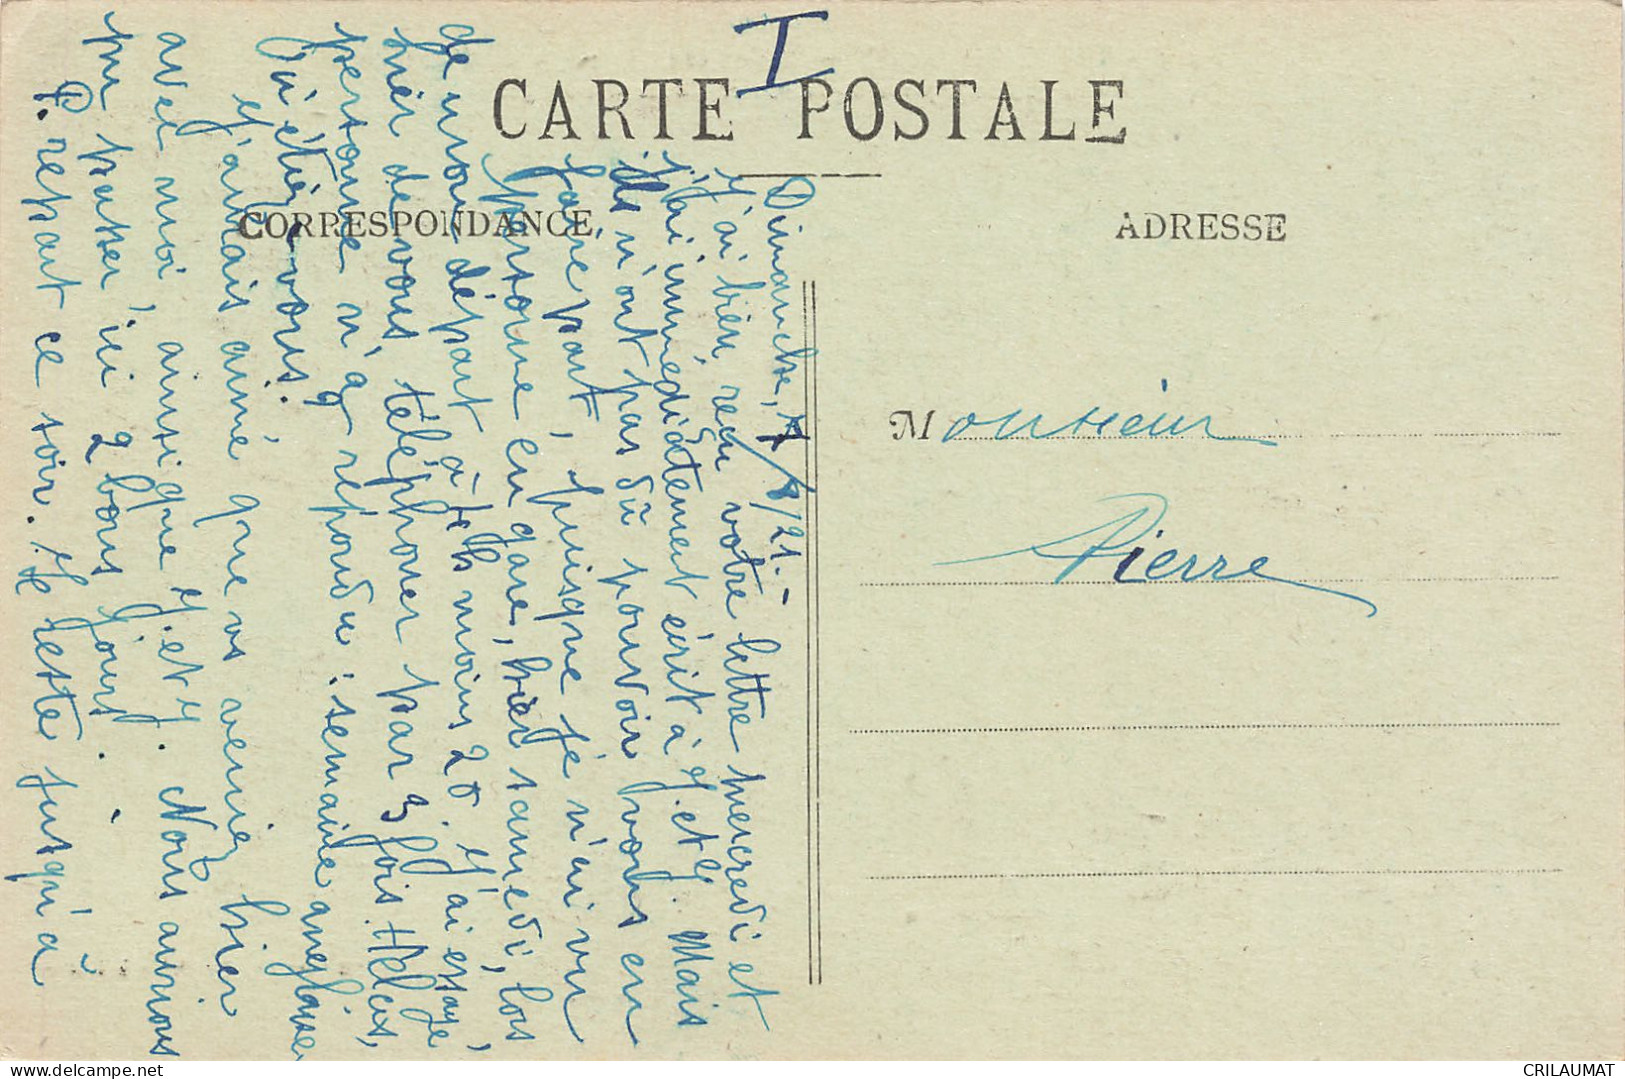 I
CARTE POSTALE
CORRESPONDANCE
ADRESSE
Dimanche, 7/8/21.-
J'ai bien reçu votre lettre mercredi et
j'ai immédiatement écrit à Y. et Y. Mais
ils n'ont pas dû pouvoir vous en
faire part, puisque je n'ai vu
personne en gare, hier samedi, lors
de mon départ à 7h moins 20. J'ai essayé,
hier de vous téléphoner par 3 fois. Hélas,
personne n'a répondu : semaine anglaise
Où étiez-vous ?
J'aurais aimé que vs veniez hier
avec moi, ainsi que Y. et Y. Nous aurions
pu passer ici 2 bons jours.
P. repart ce soir. Je reste jusqu'à
Monsieur
Pierre
CRILAUMAT